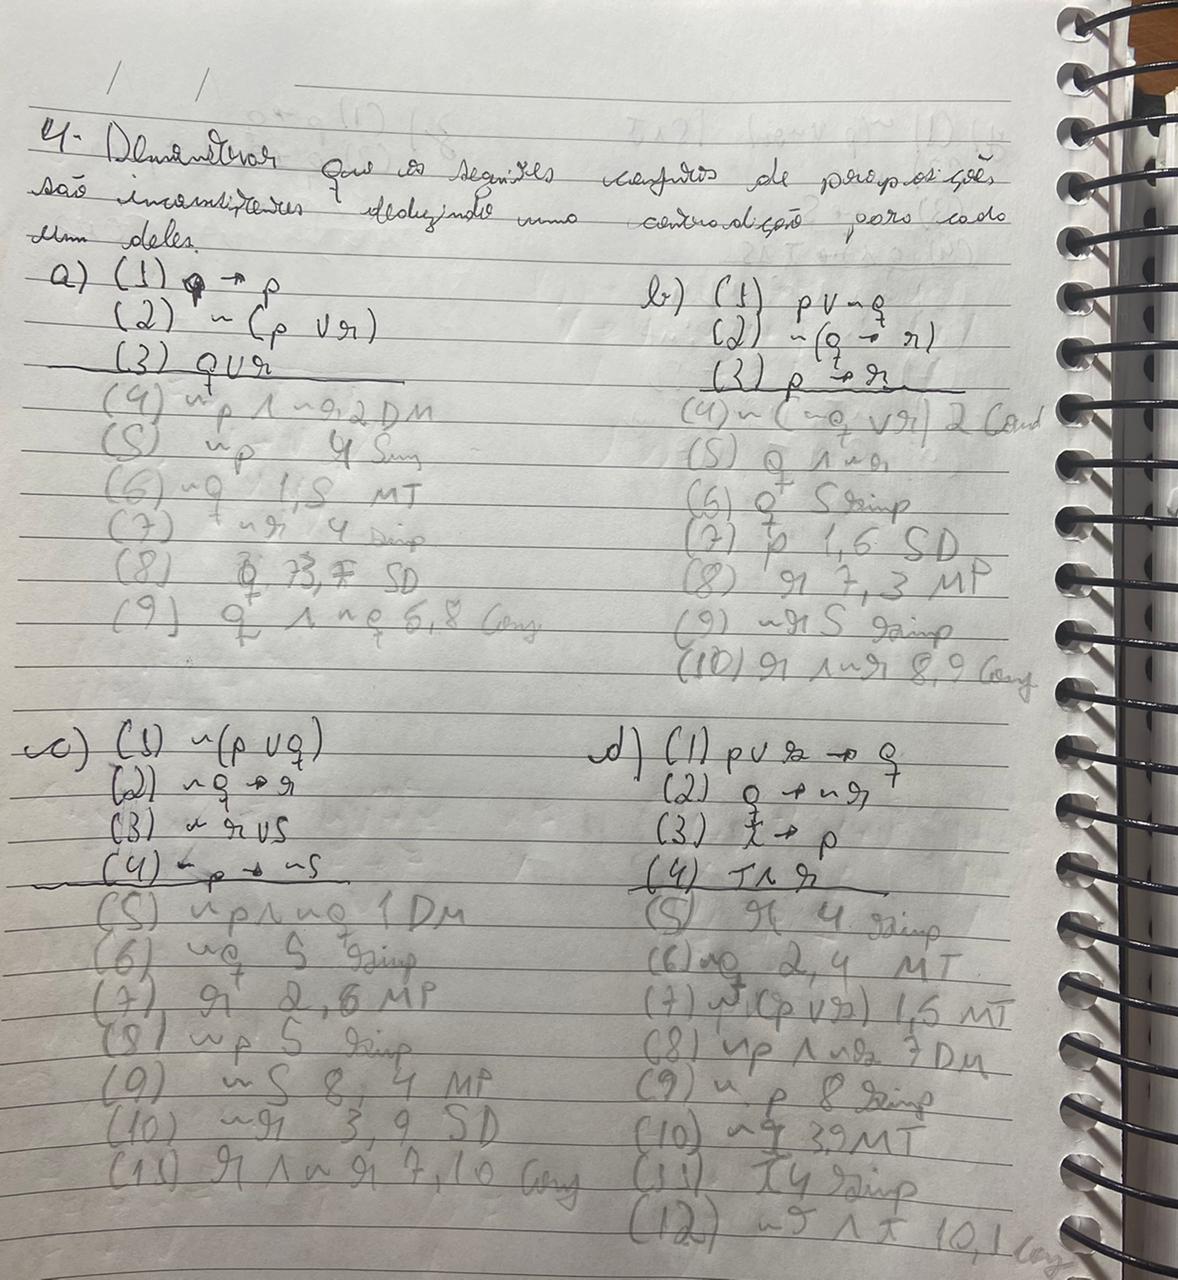 / /
4- Demonstrar que os seguintes conjuntos de proposições
são inconsistentes deduzindo uma contradição para cada
um deles.
a) (1) q → p
(2) ~(p ∨ r)
(3) q ∨ r
(4) ~p ∧ ~r, 2 DM
(5) ~p 4 Sim
(6) ~q 1,5 MT
(7) ~r 4 simp
(8) q 3,7 SD
(9) q ∧ ~q 6,8 Conj
b) (1) p ∨ ~q
(2) ~(q → r)
(3) p → r
(4) ~(~q ∨ r) 2 Cond
(5) q ∧ ~r
(6) q 5 simp
(7) p 1,6 SD
(8) r 7,3 MP
(9) ~r 5 simp
(10) r ∧ ~r 8,9 Conj
c) (1) ~(p ∨ q)
(2) ~q → r
(3) ~r ∨ s
(4) ~p → ~s
(5) ~p ∧ ~q 1 DM
(6) ~q 5 simp
(7) r 2,6 MP
(8) ~p 5 simp
(9) ~s 8,4 MP
(10) ~r 3,9 SD
(11) r ∧ ~r 7,10 Conj
d) (1) p ∨ s → q
(2) q → ~r
(3) t → p
(4) t ∧ r
(5) r 4 simp
(6) ~q 2,4 MT
(7) ~(p ∨ s) 1,6 MT
(8) ~p ∧ ~s 7 DM
(9) ~p 8 simp
(10) ~t 3,9 MT
(11) t 4 simp
(12) ~t ∧ t 10,1 Conj